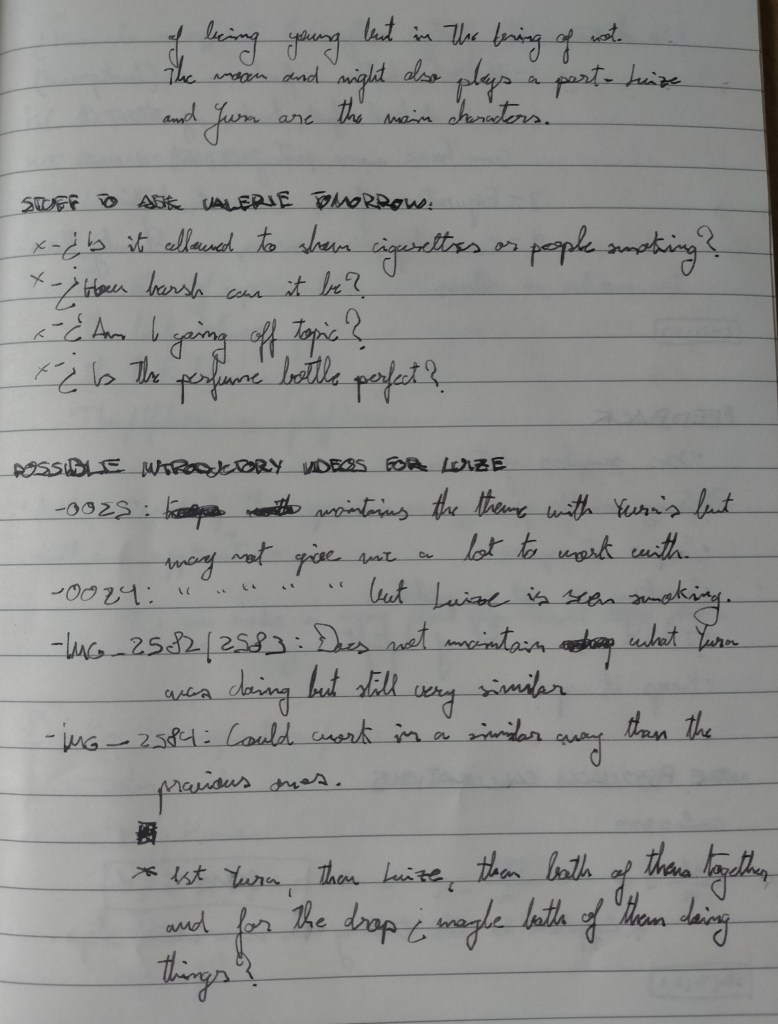 of being young but in the being of not.
The moon and night also plays a part - Luize
and Yura are the main characters.
STUFF TO ASK VALERIE TOMORROW:
x-¿Is it allowed to show cigarettes or people smoking?
x-¿How harsh can it be?
x-¿Am I going off topic?
x-¿Is the perfume bottle perfect?
POSSIBLE INTRODUCTORY VIDEOS FOR LUIZE
-0025: maintains the theme with Yura's but
may not give me a lot to work with.
-0024: " " " " " but Luize is seen smoking.
-IMG_2582/2583: Does not maintain what Yura
was doing but still very similar
-IMG_2584: Could work in a similar way than the
previous ones.
* 1st Yura, then Luize, then both of them together,
and for the drop ¿maybe both of them doing
things?